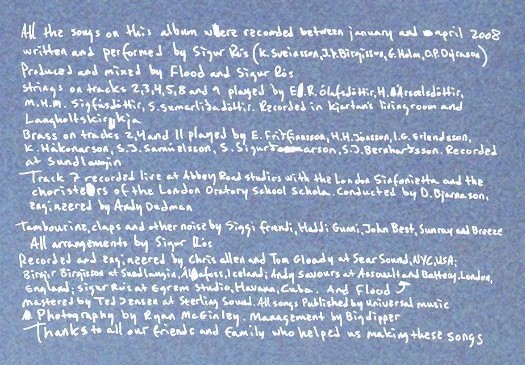 All the songs on this album were recorded between january and april 2008
written and performed by Sigur Rós (K. Sveinsson, J.Þ. Birgisson, G. Holm, O.P. Dýrason)
Produced and mixed by Flood and Sigur Rós
Strings on tracks 2,3,4,5,8 and 9 played by E.R. Ólafsdóttir, H. Ársælsdóttir,
M.H.M. Sigfúsdóttir, S. Sumarliðadóttir. Recorded in kjartan's livingroom and
Langholtskirkja
Brass on tracks 2,4 and 11 played by E. Friðfinnsson, H.H. Jónsson, I.G. Erlendsson,
K. Hákonarson, S.J. Samúelsson, S. Sigurðarson, S.J. Bernharðsson. Recorded
at Sundlaugin
Track 7 recorded live at Abbey Road studios with the London Sinfonietta and the
choristers of the London Oratory School Schola. Conducted by D. Bjarnason,
engineered by Andy Dudman
Tambourine, claps and other noise by Siggi frendi, Haddi Gumi, John Best, Sunray and Breeze
All arrangements by Sigur Rós
Recorded and engineered by Chris allen and Tom Gloady at Sear Sound, NYC, USA;
Birgir Birgisson at Sundlaugin, Álafoss, Iceland; Andy Savours at Assault and Battery, London,
England; sigur Rós at Egrem Studio, Havana, Cuba. And Flood
mastered by Ted Jensen at Sterling Sound. All songs Published by universal music
Photography by Ryan McGinley. Management by Bigdipper
Thanks to all our friends and family who helped us making these songs